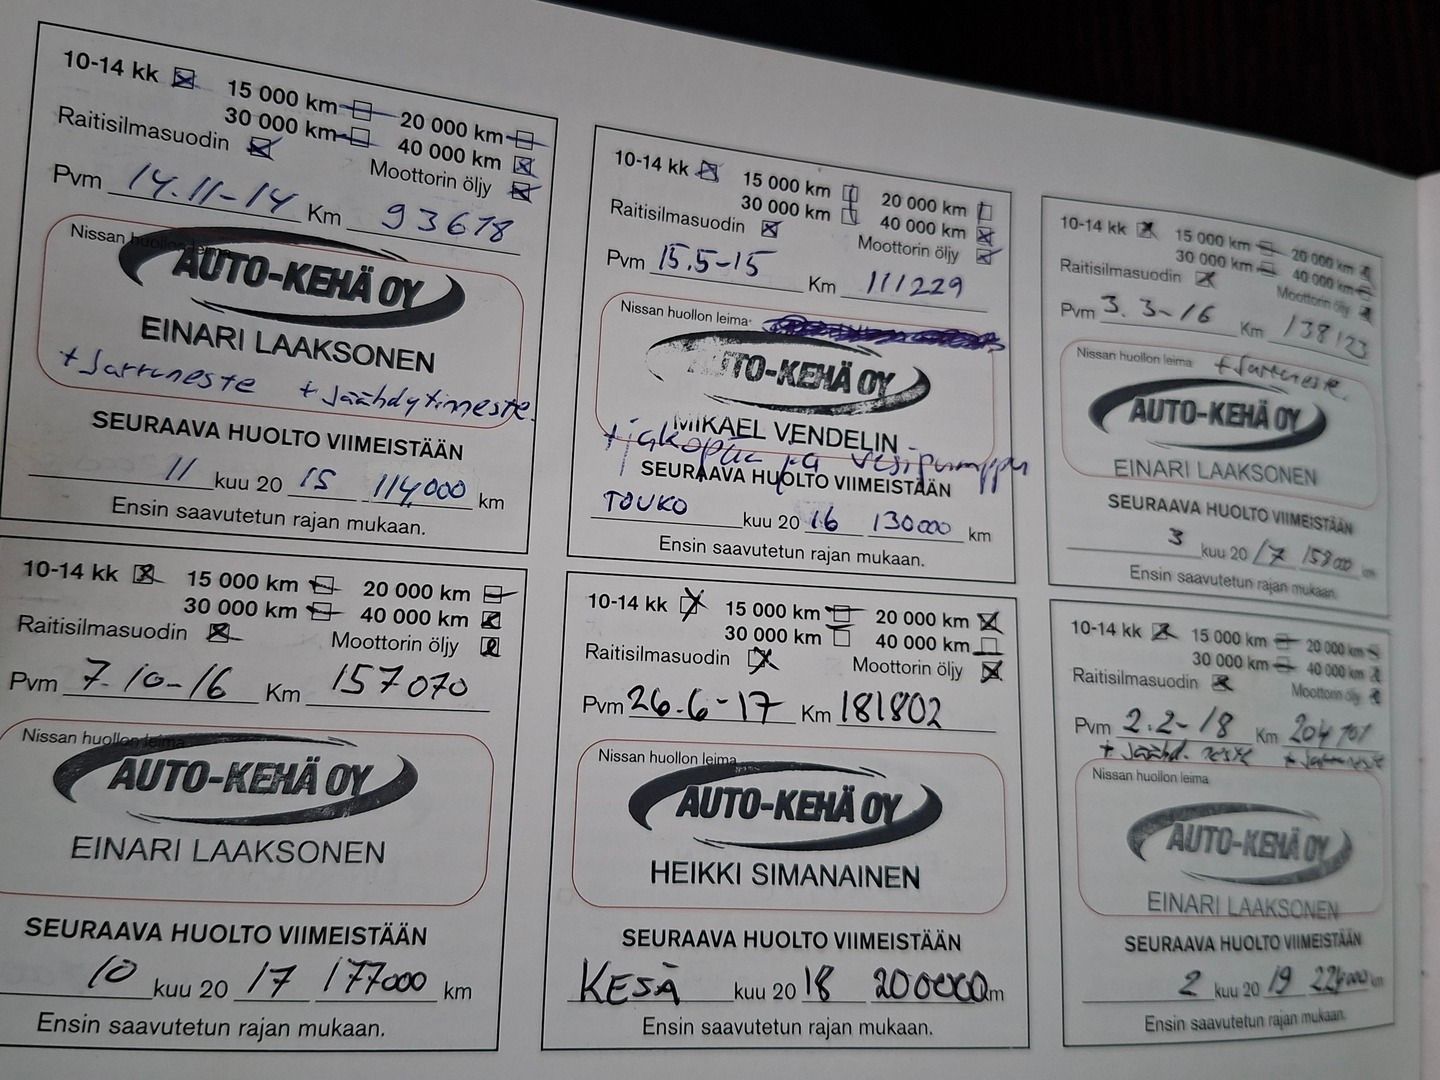 10-14 kk 15 000 km 20 000 km
30 000 km 40 000 km
Raitisilmasuodin Moottorin öljy
Pvm 14.11-14 Km 93678
Nissan huollon leima
AUTO-KEHÄ OY
EINARI LAAKSONEN
+ Jarruneste + Jäähdytinneste.
SEURAAVA HUOLTO VIIMEISTÄÄN
11 kuu 20 15 114,000 km
Ensin saavutetun rajan mukaan.
10-14 kk 15 000 km 20 000 km
30 000 km 40 000 km
Raitisilmasuodin Moottorin öljy
Pvm 15.5-15 Km 111229
Nissan huollon leima
AUTO-KEHÄ OY
MIKAEL VENDELIN
+ jakopää ja vesipumppu
SEURAAVA HUOLTO VIIMEISTÄÄN
TOUKO kuu 20 16 130000 km
Ensin saavutetun rajan mukaan.
10-14 kk 15 000 km 20 000 km
30 000 km 40 000 km
Raitisilmasuodin Moottorin öljy
Pvm 3.3-16 Km 138123
Nissan huollon leima + Jarruneste.
AUTO-KEHÄ OY
EINARI LAAKSONEN
SEURAAVA HUOLTO VIIMEISTÄÄN
3 kuu 20 17 158000 km
Ensin saavutetun rajan mukaan.
10-14 kk 15 000 km 20 000 km
30 000 km 40 000 km
Raitisilmasuodin Moottorin öljy
Pvm 7.10-16 Km 157070
Nissan huollon leima
AUTO-KEHÄ OY
EINARI LAAKSONEN
SEURAAVA HUOLTO VIIMEISTÄÄN
10 kuu 20 17 177000 km
Ensin saavutetun rajan mukaan.
10-14 kk 15 000 km 20 000 km
30 000 km 40 000 km
Raitisilmasuodin Moottorin öljy
Pvm 26.6-17 Km 181802
Nissan huollon leima
AUTO-KEHÄ OY
HEIKKI SIMANAINEN
SEURAAVA HUOLTO VIIMEISTÄÄN
KESÄ kuu 20 18 200000 km
Ensin saavutetun rajan mukaan.
10-14 kk 15 000 km 20 000 km
30 000 km 40 000 km
Raitisilmasuodin Moottorin öljy
Pvm 2.2-18 Km
+ Jäähd. neste + Jarruneste
Nissan huollon leima
AUTO-KEHÄ OY
EINARI LAAKSONEN
SEURAAVA HUOLTO VIIMEISTÄÄN
2 kuu 20 19 224000 km
Ensin saavutetun rajan mukaan.